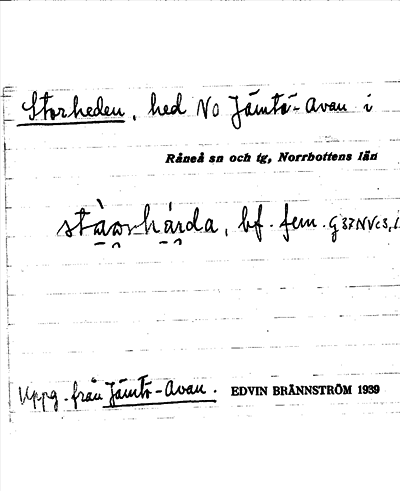 Storheden, hed NO Jämtö-Avan i
Råneå sn och tg, Norrbottens län
bf. fem.
Uppg. från Jämtö-Avan. EDVIN BRÄNNSTRÖM 1939